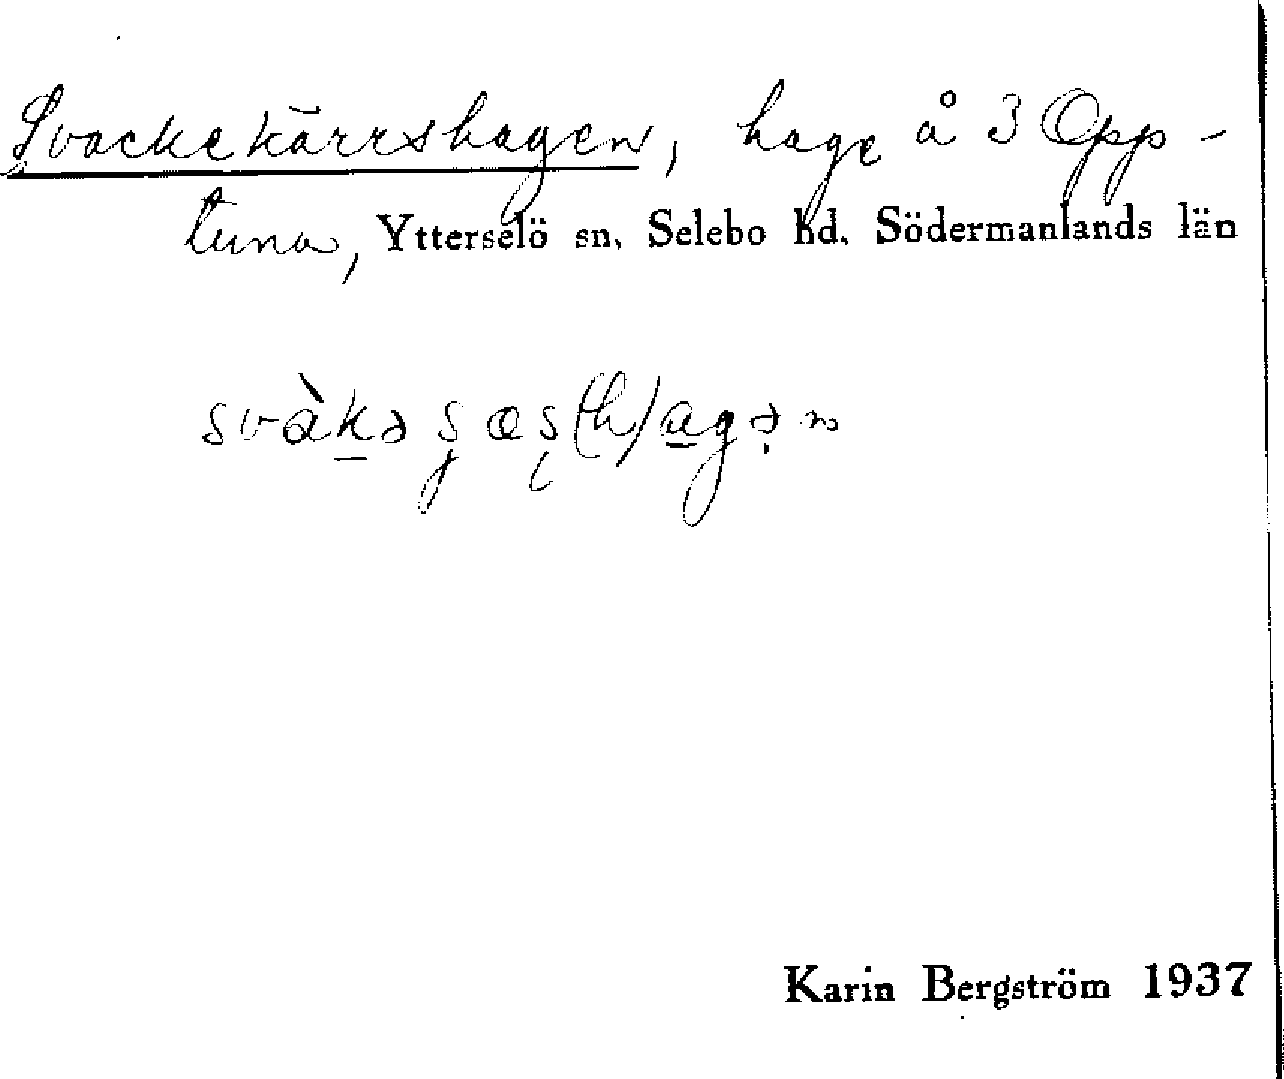 Svackekärrshagen, hage å 3 Opp-
tuna, Ytterselö sn. Selebo hd. Södermanlands län
svàkə ʂæʂ(h)agən
Karin Bergström 1937